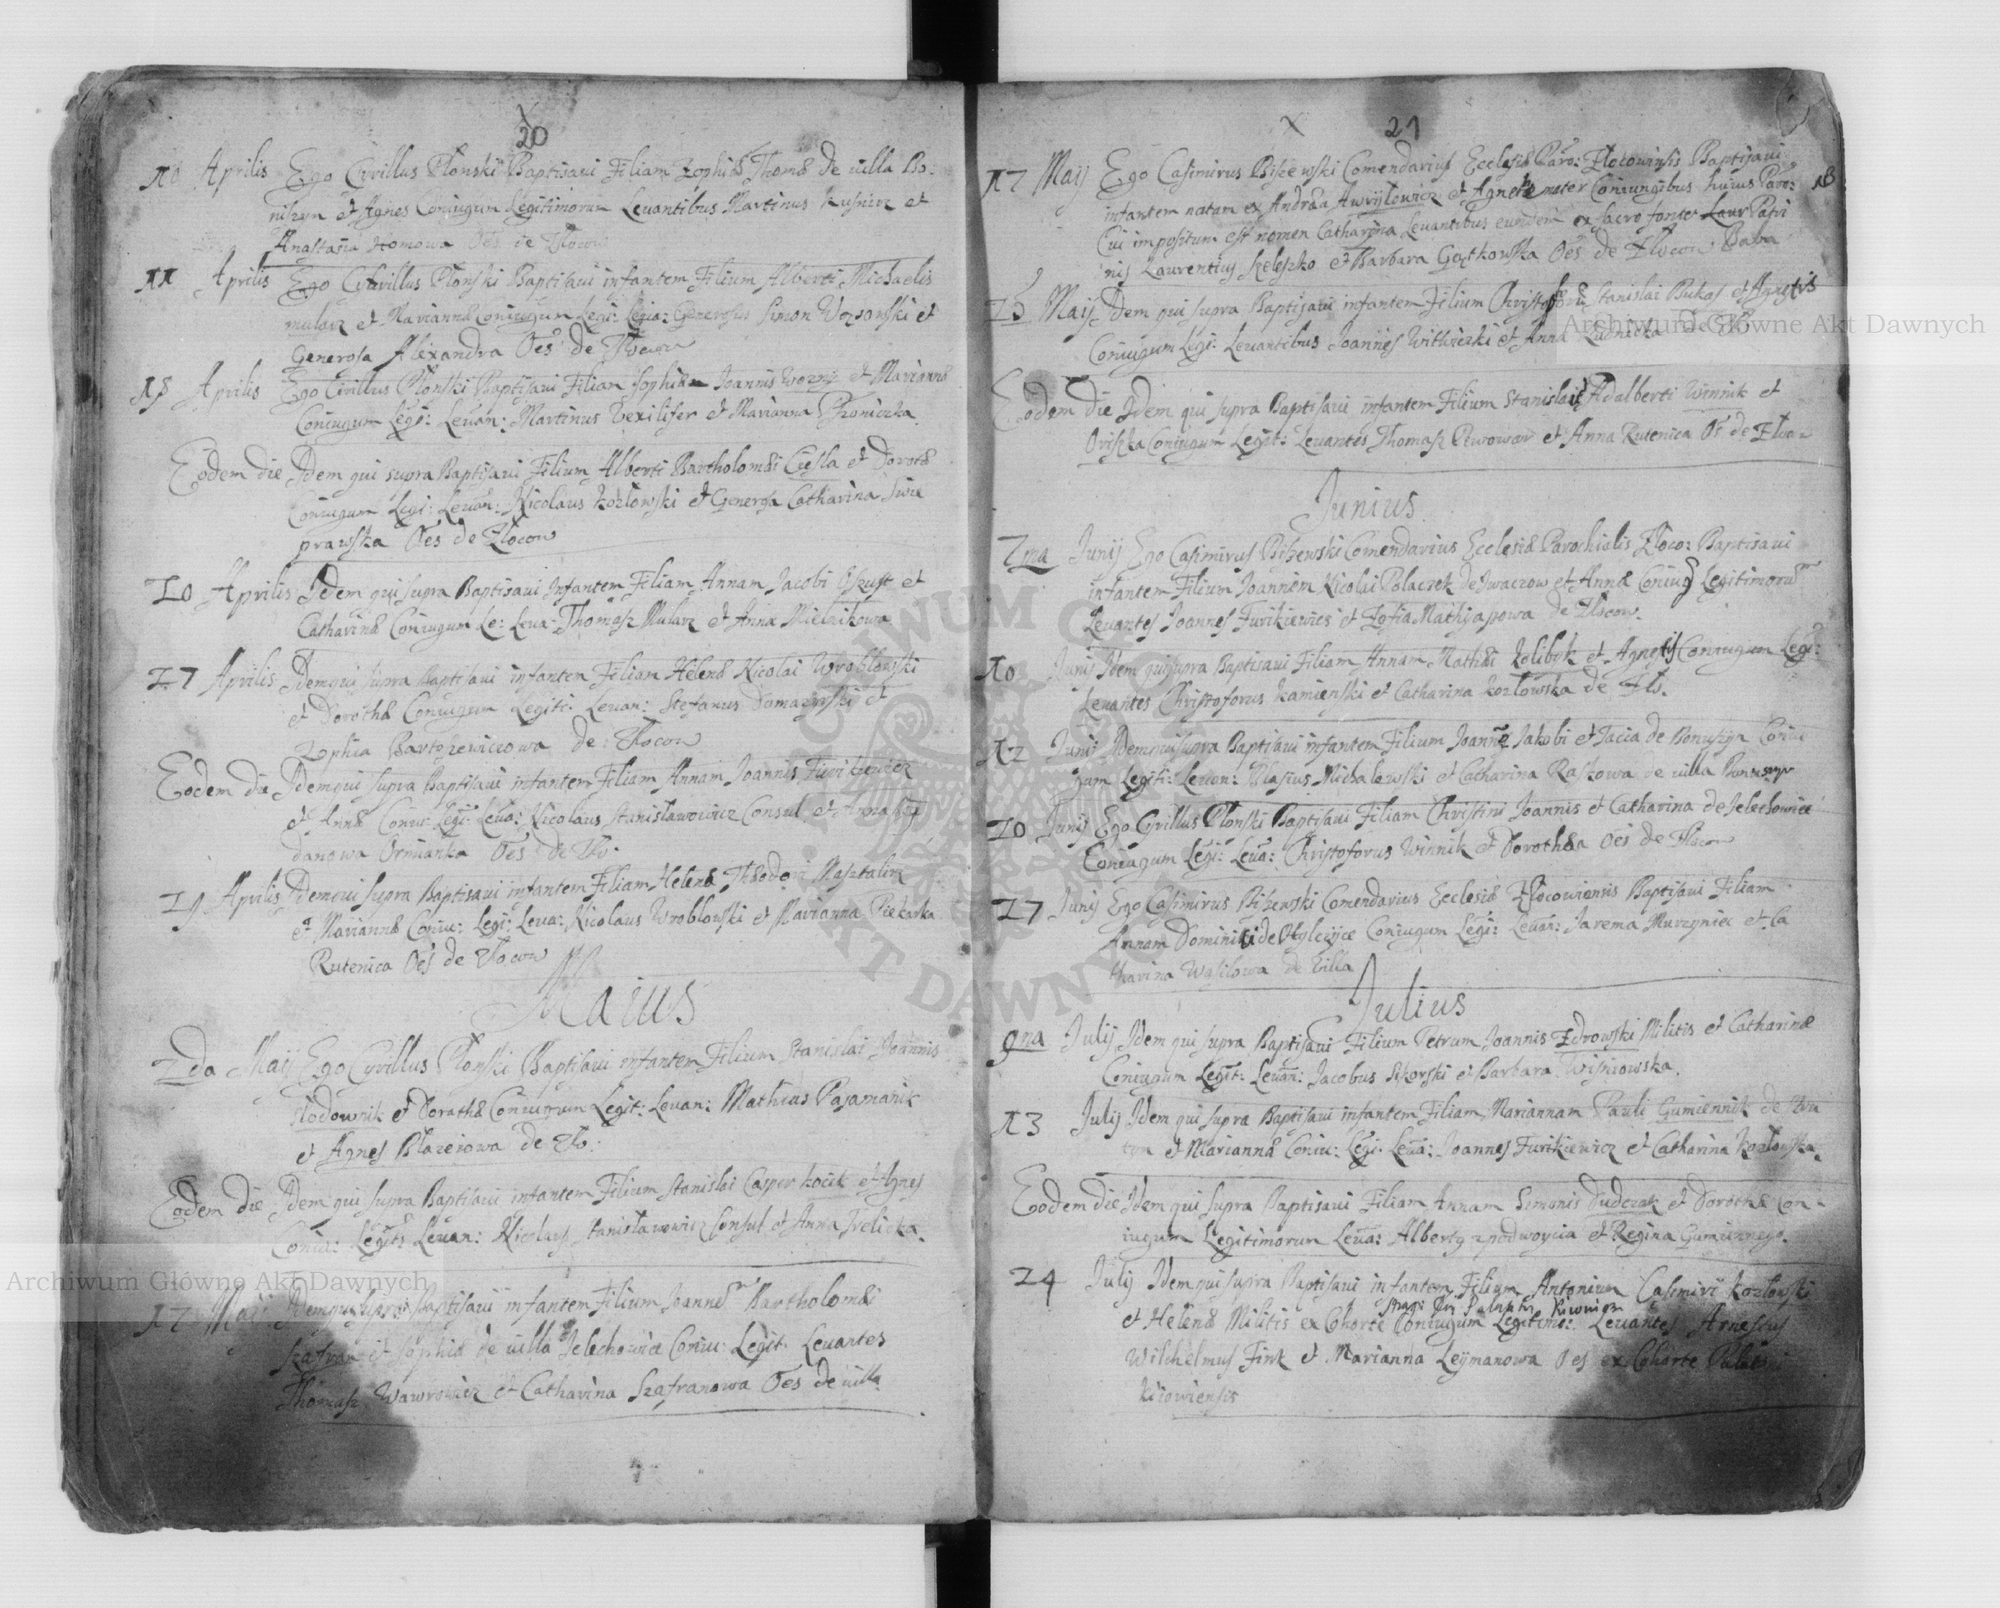 20
10 Aprilis Ego Cyrillus Płonski Baptisaui Filiam Zophiæ Thomæ de uilla Bo:
niszyn et Agnes Coniugum Legitimorum Leuantibus Martinus Kusnirz et
Anastasia Homowa Oēs de Złocow
11 Aprilis Ego Cyrillus Płonski Baptisaui infantem Filium Alberti Michaelis
mularz et Mariannæ Coniugum Legi: Leua: Generosus Simon Wozowski et
Generosa Alexandra Oēs de Złocow
18 Aprilis Ego Cirillus Płonski Baptisaui Filiam Sophiam Joannis Wozny et Mariannæ
Coniugum Legi: Leuan: Martinus Vexilifer et Marianna
Eodem die Idem qui supra Baptisaui Filium Alberti Bartholomæi Ciesla et Dorotæ
Coniugum Legi: Leuan: Nicolaus Kozlowski et Generosa Catharina Swie
prawska Oēs de Złocow
20 Aprilis Idem qui supra Baptisaui Infantem Filiam Annam Jacobi Oszust et
Catharinæ Coniugum Le: Leua: Thomasz Mularz et Anna Mielnikowa
27 Aprilis Idem qui supra Baptisaui infantem Filiam Helenæ Nicolai Wroblowski
et Dorothæ Coniugum Legiti: Leuan: Stefanus Domazyrski et
Zophia Bartoszewiczowa de Złocow
Eodem die Idem qui supra Baptisaui infantem Filiam Annam Joannis Furikiewicz
et Annæ Coniu: Legi: Leua: Nicolaus Stanisławowicz Consul et Anna
danowa Ormianka Oēs de Zło:
29 Aprilis Idem qui supra Baptisaui infantem Filiam Helenæ Theodori Masztalirz
et Mariannæ Coniu: Legi: Leua: Nicolaus Wroblowski et Marianna Piekarka
Rutenica Oēs de Złocow
Maius
2da Maij Ego Cyrillus Płonski Baptisaui infantem Filium Stanislai Joannis
Słodownik et Dorathæ Coniugum Legit: Leuan: Mathius Pasamanik
et Agnes Błazeiowa de Zło:
Eodem die Idem qui supra Baptisaui infantem Filium Stanislai Casper Kocik et Agnes
Coniu: Legit: Leuan: Nicolaus Stanisławewicz Consul et Anna
17 Maij Idem qui supra Baptisaui infantem Filium Joannes Bartholomæi
Szafran et Sophiæ de uilla Jelechowice Coniu: Legit: Leuantes
Thomasz Wawrowicz et Catharina Szafranowa Oēs de uilla
21
17 Maij Ego Casimirus Biszewski Comendarius Ecclesiæ Paro: Złocowiensis Baptisaui
infantem natam ex Andræa Awryłewicz et Agnete mater Coniungibus huius Paro:
Cui impositum est nomen Catharina Leuantibus eundem ex sacro fonte Patri
nis Laurentius Szeleszko et Barbara Gęątkowska Oēs de Złocow Baba
25 Maij Idem qui supra Baptisaui infantem Filium Christoforū Stanislai Bukas et Agnetis
Coniugum Legi: Leuantibus Joannes Withwicki et Anna Rudnicka de Zło
Eodem die Idem qui supra Baptisaui infantem Filium Stanislai Adalberti Winnik et
Oryszka Coniugum Legit: Leuantes Thomasz Piwowar et Anna Rutenica Oēs de Złoco
Junius
2na Junij Ego Casimirus Biszewski Comendarius Ecclesiæ Parochialis Złoco: Baptisaui
infantem Filium Joannem Nicolai Polaczek de Iwaczow et Annæ Coniug Legitimorū
Leuantes Joannes Furikiewics et Zofia Mathyaszowa de Złocow.
10 Junij Idem qui supra Baptisaui Filiam Annam Mathæi Kolibek et Agnetis Coniugum Legi:
Leuantes Christoforus Kamienski et Catharina Kozłowska de Zło.
12 Junij Idem qui supra Baptisaui infantem Filium Joannē Jakobi et Tacia de Boniszyn Coniu
gum Legiti: Leuan: Blasius Michalewski et Catharina Raskowa de uilla Boniszyn
20 Junij Ego Cyrillus Płonski Baptisaui Filiam Christini Joannis et Catharina de Jelechowice
Coniugum Legi: Leua: Christoforus Winnik et Dorothæa Oēs de Złocow
27 Junij Ego Casimirus Biszewski Comendarius Ecclesiæ Złocowiensis Baptisaui Filiam
Annam Dominiki de Coniugum Legi: Leuan: Jarema Murzyniec et Ca
tharina Wasilowa de Villa
Julius
9na Julij Idem qui supra Baptisaui Filium Petrum Joannis Zdrowski Militis et Catharinæ
Coniugum Legit: Leuan: Jacobus Sikorski et Barbara Wisniowska.
13 Julij Idem qui supra Baptisaui infantem Filiam Mariannam Pauli Gumiennik de
et Mariannæ Coniu: Legi: Leua: Joannes Furikiewicz et Catharina Kozłowska.
Eodem die Idem qui supra Baptisaui Filiam Annam Simonis Dudczak et Dorothæ Con-
iugum Legitimorum Leua: Alberty zpodwoycia et Regina Gumiennego.
24 Julij Idem qui supra Baptisaui infantem Filium Antonium Casimiri Kozłowski
et Helenæ Militis ex Cohorte Coniugum Legitimo: Leuantes Arnestus
Wilchelmus Fink et Marianna Leymanowa Oēs ex Cohorte Palatini
Kiiowiensis
Archiwum Główne Akt Dawnych
Archiwum Główne Akt Dawnych